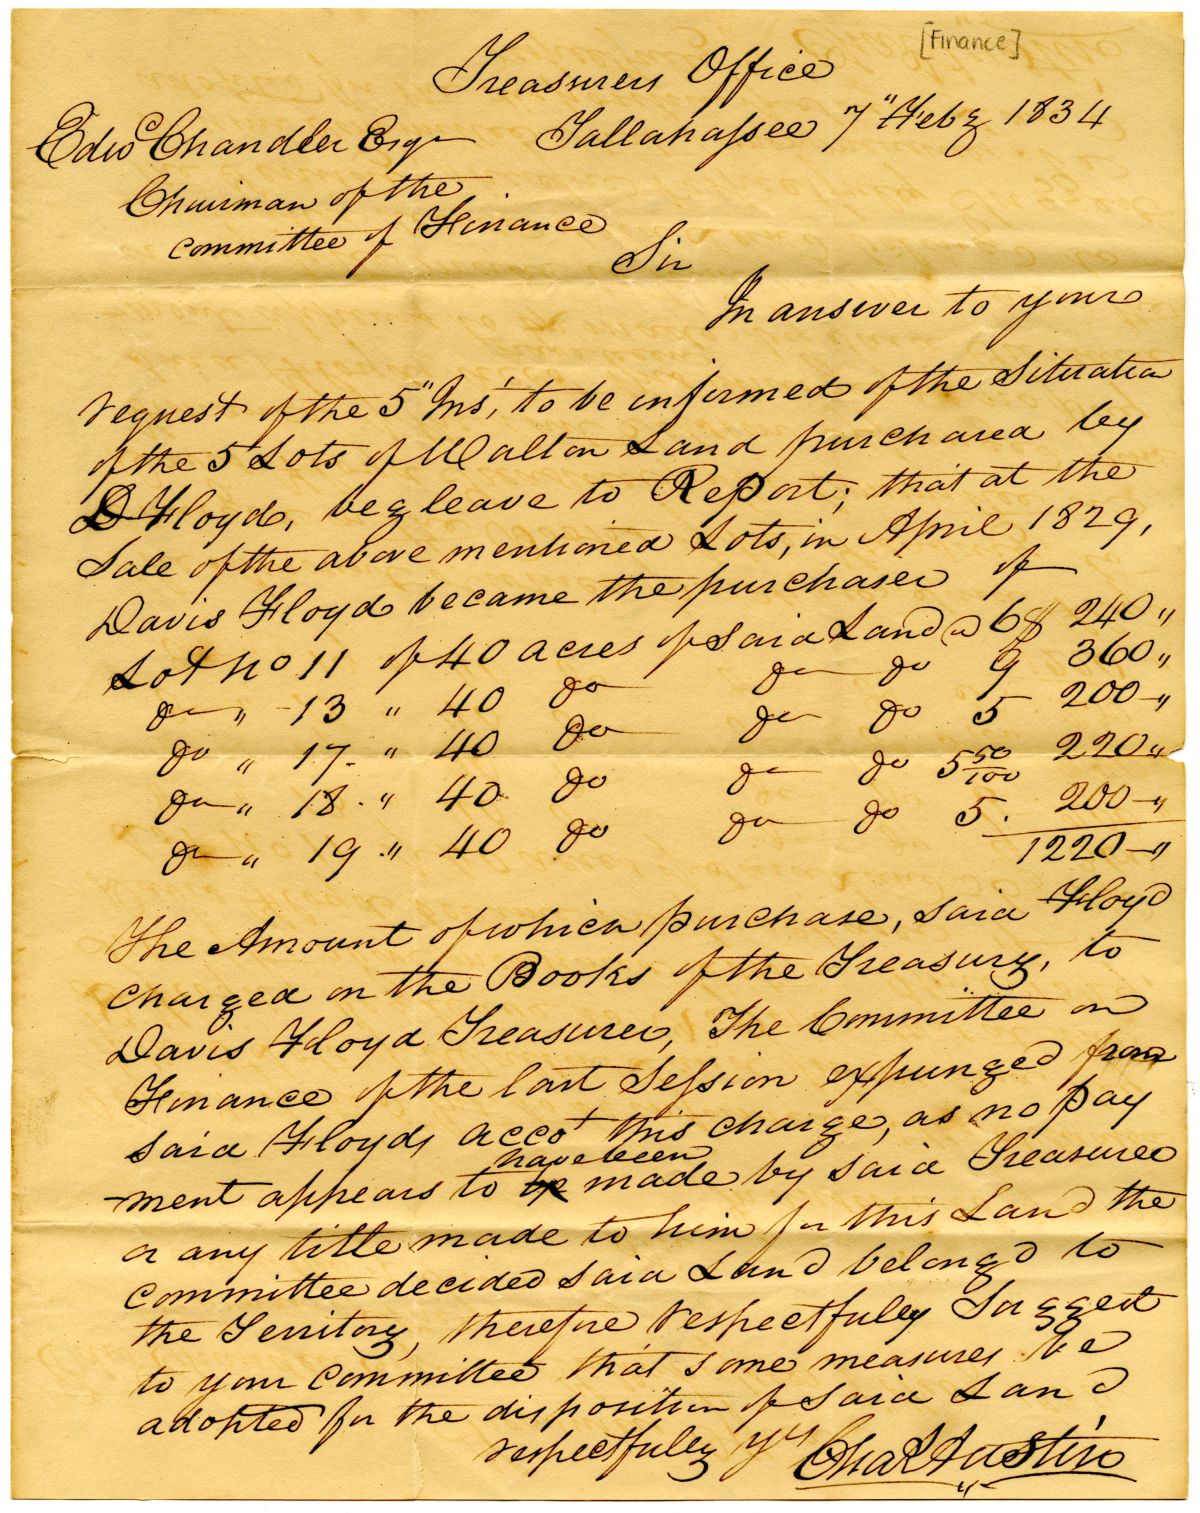 [Finance]
Treasurers Office
Tallahassee 7" Feby 1834
Edwd Chandler Esqr
Chairman of the
committee of Finance
Sir
In answer to your
request of the 5" Inst, to be informed of the Situation
of the 5 Lots of Walton Land purchased by
D Floyd, beg leave to Report; that at the
Sale of the above mentioned Lots, in April 1829,
Davis Floyd became the purchaser of
Lot No 11 of 40 acres of said Land @ 6$ 240 "
do " 13 " 40 do do do 9 360 "
do " 17 " 40 do do do 5 200 "
do " 18 " 40 do do do 5 50/100 220 "
do " 19 " 40 do do do 5. 200 "
1220 "
The Amount of which purchase, said Floyd
charged on the Books of the Treasury, to
Davis Floyd Treasurer, The Committee on
Finance of the last Session expunged from
said Floyds acco't this charge, as no pay
ment appears to have been made by said Treasurer
or any title made to him for this Land the
committee decided said Land belong'd to
the Territory, therefore respectfully Suggest
to your committee that some measures be
adopted for the disposition of said Land
respectfully yrs Chas Austin